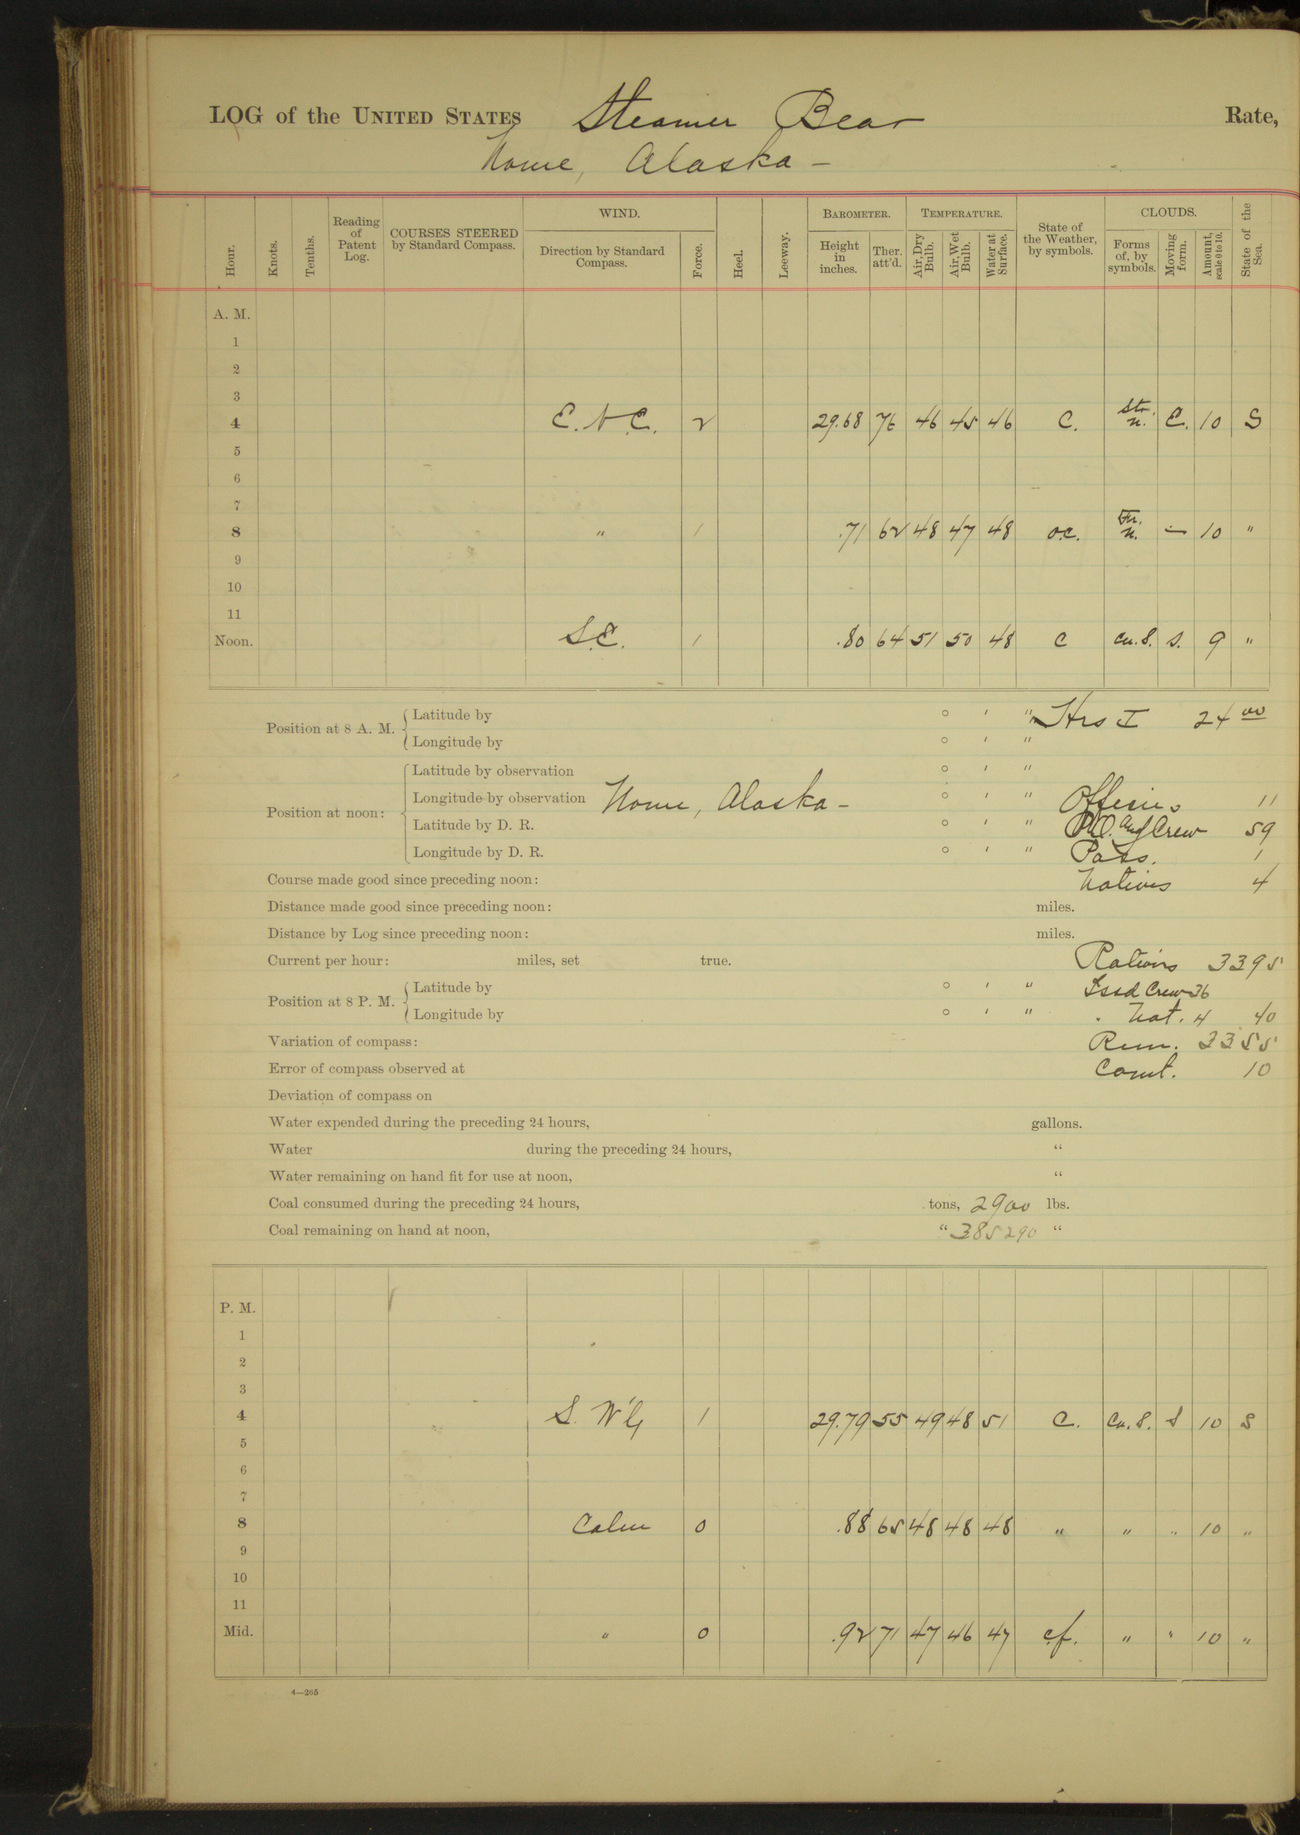 LOG of the UNITED STATES Steamer Bear Rate,
Nome, Alaska —
Hour. Knots. Tenths. Reading of Patent Log. COURSES STEERED by Standard Compass. WIND. Direction by Standard Compass. Force. Heel. Leeway. BAROMETER. Height in inches. Ther. att'd. TEMPERATURE. Air, Dry Bulb. Air, Wet Bulb. Water at Surface. State of the Weather, by symbols. CLOUDS. Forms of, by symbols. Moving form. Amount, scale 0 to 10. State of the Sea.
A. M.
1
2
3
4 E. N. E. 2 29.68 76 46 45 46 C. Str. N. E. 10 S
5
6
7
8 " 1 .71 62 48 47 48 o.c. N. — 10 "
9
10
11
Noon. S.E. 1 .80 64 51 50 48 C Cu. S. S. 9 "
Position at 8 A. M. Latitude by ° ' " Hrs I 24 00
Longitude by ° ' "
Position at noon: Latitude by observation ° ' "
Longitude by observation Nome, Alaska — ° ' " Officers 11
Latitude by D. R. ° ' " P.O. and Crew 59
Longitude by D. R. ° ' " Pass. 1
Course made good since preceding noon: Natives 4
Distance made good since preceding noon: miles.
Distance by Log since preceding noon: miles.
Current per hour: miles, set true. Rations 3395
Position at 8 P. M. Latitude by ° ' " Issd Crew 36
Longitude by ° ' " " Nat. 4 40
Variation of compass: Rem. 3355
Error of compass observed at Comt. 10
Deviation of compass on
Water expended during the preceding 24 hours, gallons.
Water during the preceding 24 hours, "
Water remaining on hand fit for use at noon, "
Coal consumed during the preceding 24 hours, tons, 2900 lbs.
Coal remaining on hand at noon, " 385290 "
P. M.
1
2
3
4 S. W'ly 1 29.79 55 49 48 51 C. Cu. S. S 10 S
5
6
7
8 Calm 0 .88 65 48 48 48 " " " 10 "
9
10
11
Mid. " 0 .92 71 47 46 47 c.f. " " 10 "
4—265